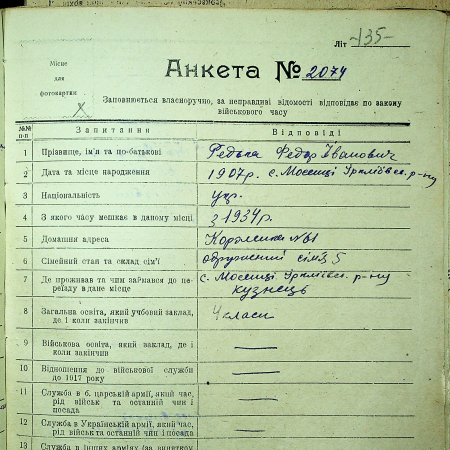 Літ -135-
Місце
для
фотокартки
Анкета № 2074
Заповнюється власноручно, за неправдиві відомості відповідає по закону
військового часу
№№ п-п Запитання Відповіді
1 Прізвище, ім'я та по-батькові Редька Федір Іванович
2 Дата та місце народження 1907р. с. Мосенці р-ну
3 Національність укр.
4 З якого часу мешкає в даному місці з 1934р.
5 Домашня адреса №1
6 Сімейний стан та склад сім'ї одружений сім'я 5
7 Де проживав та чим займався до пе- с. Мосенці р-ну
реїзду в дане місце кузнець
8 Загальна освіта, який учбовий заклад, 4 класи
де і коли закінчив
9 Військова освіта, який заклад, де і —
коли закінчив
10 Відношення до військової служби —
до 1917 року
11 Служба в б. царській армії, який час, —
рід військ та останній чин і
посада
12 Служба в Українській армії, який час, —
рід військ та останній чин і посада
13 Служба в інших арміях (за винятком